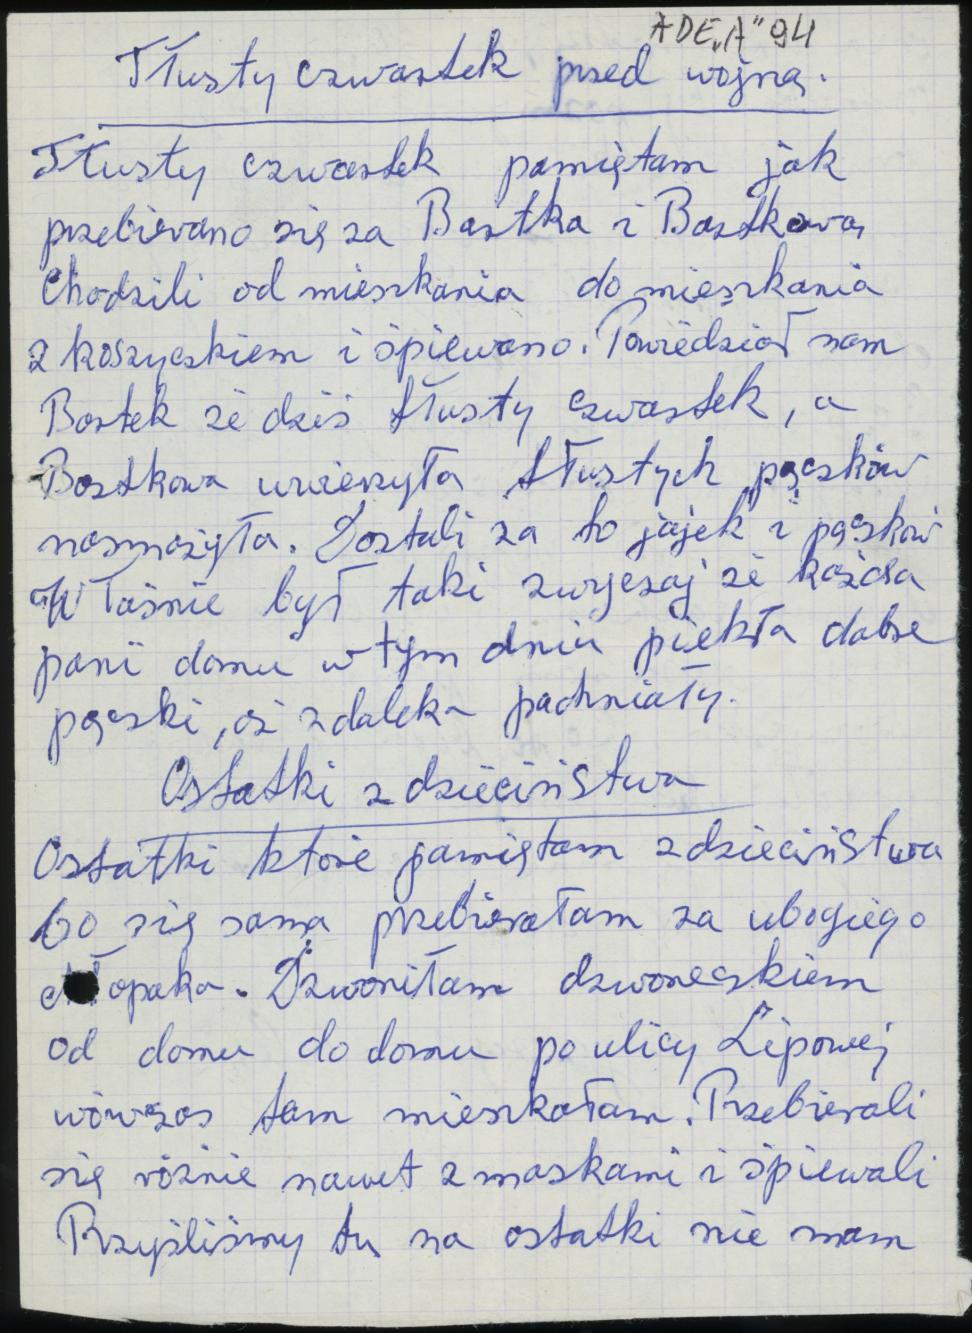 ADE „A” 94
Tłusty czwartek przed wojną.
Tłusty czwartek pamiętam jak
przebierano się za Bartka i Bartkową
Chodzili od mieszkania do mieszkania
z koszyczkiem i śpiewano. Powiedział nam
Bartek że dziś tłusty czwartek, a
Bartkowa uwierzyła tłustych pączków
nasmażyła. Dostali za to jajek i pączków
Właśnie był taki zwyczaj że każda
pani domu w tym dniu piekła dobre
pączki, aż z daleka pachniały.
Ostatki z dzieciństwa
Ostatki które pamiętam z dzieciństwa
bo się sama przebierałam za ubogiego
chłopaka. Dzwoniłam dzwoneczkiem
od domu do domu po ulicy Lipowej
wówczas tam mieszkałam. Przebierali
się różnie nawet z maskami i śpiewali
Przyśliśmy tu na ostatki nie mam